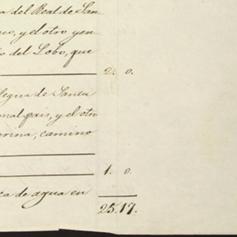 a del Real de San
uo, y el otro yen
io del Lobo, que
2. 0.
legua de Santa
onal pais, y el otro
orina, camino
1. 0.
ca de agua en
25.17.